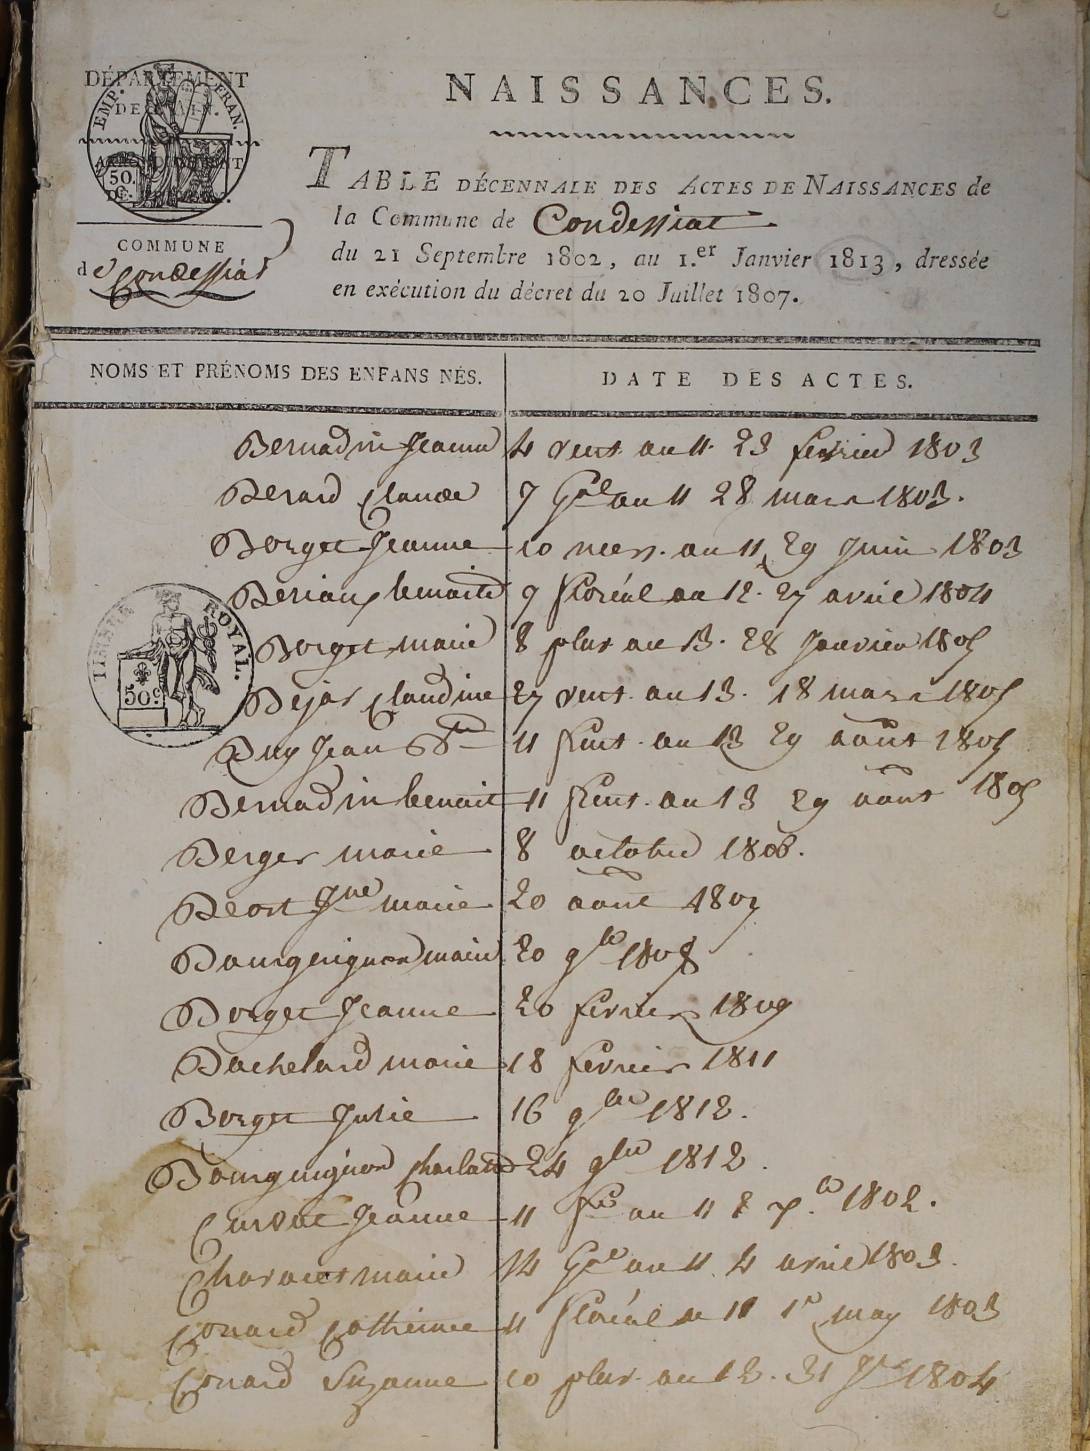 NAISSANCES.
DÉPARTEMENT
DE L'AIN.
EMP. FRAN.
ARRONDISSEMENT
50.
DC.
COMMUNE
de Condessiat
TABLE DÉCENNALE DES ACTES DE NAISSANCES de
la Commune de Condessiat
du 21 Septembre 1802, au 1.er Janvier 1813, dressée
en exécution du décret du 20 Juillet 1807.
NOMS ET PRÉNOMS DES ENFANS NÉS. DATE DES ACTES.
Bernadin Jeanne 4 vent. an 11. 23 fevrier 1803
Berard Claude 7 Gal an 11 28 mars 1803.
Borget Jeanne 10 mess. an 11 29 Juin 1803
benoite 9 floréal an 12. 27 avril 1804
Borget marie 8 pluv an 13. 28 Janvier 1805
Bejar Claudine 27 vent. an 13. 18 mars 1805
TIMBRE ROYAL.
50c
Buy Jean Bte 11 fruct. an 13 29 août 1805
Bernadin benoit 11 fruct. an 13 29 août 1805
Berger marie 8 octobre 1806.
Beost Jne marie 20 août 1807
Bourguignon marie 20 9bre 1808
Borget Jeanne 20 fevrier 1809
Bachelard marie 18 fevrier 1811
Borget Julie 16 9bre 1812.
Bourguignon 24 9bre 1812.
Curvat Jeanne 11 an 11 1802.
marie 14 Gal an 11. 4 avril 1803.
Conard Catherine 11 floréal an 11 1er may 1803
Conard Suzanne 10 pluv. an 12. 31 1804